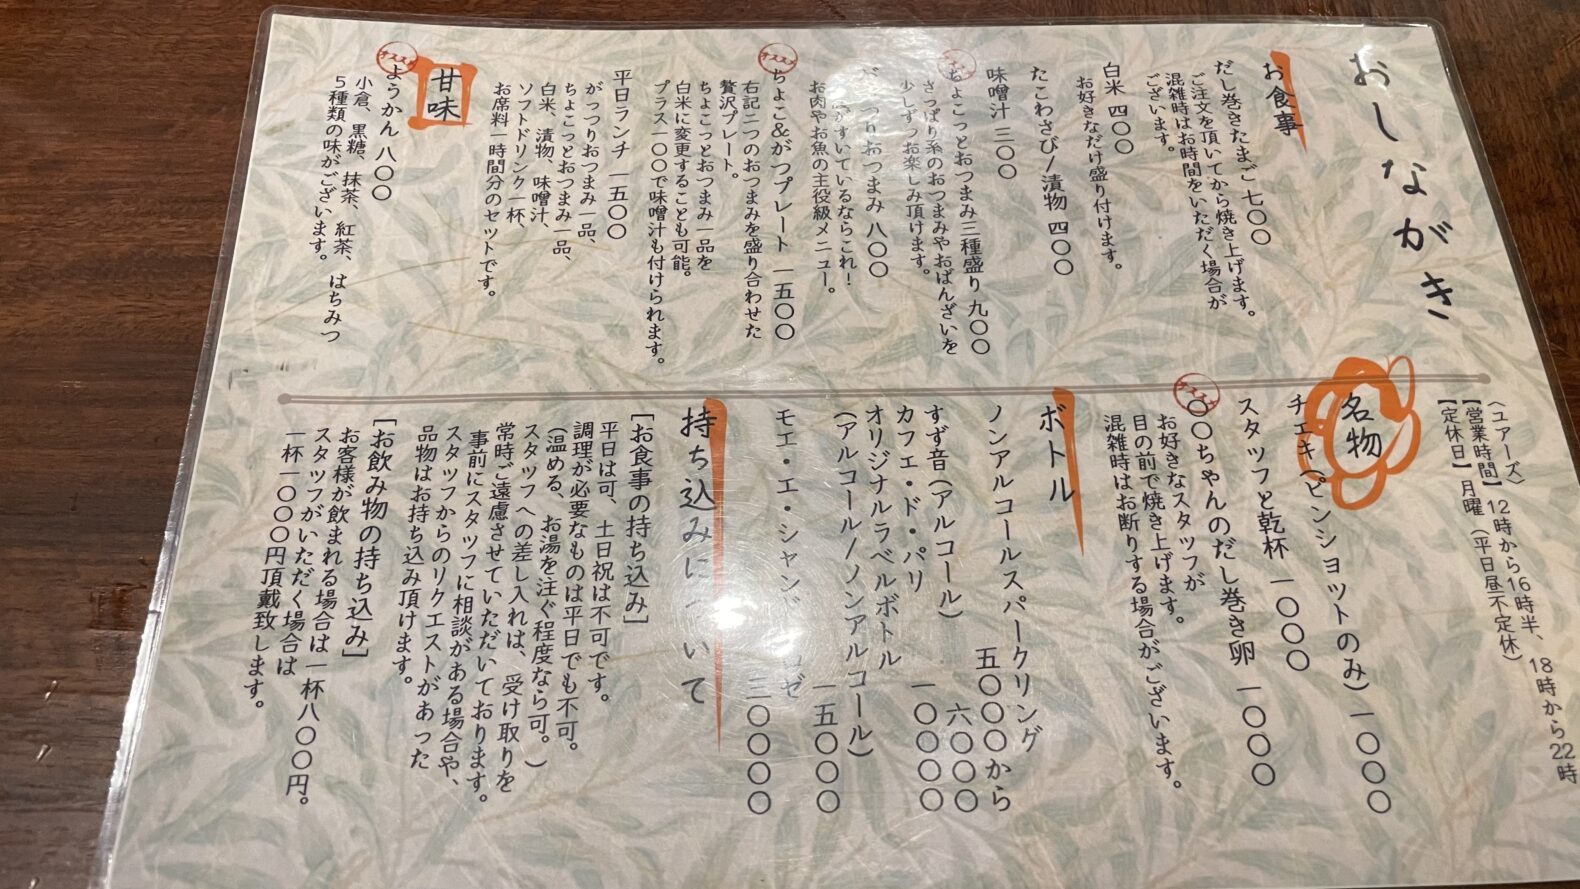 おしながき
お食事
だし巻きたまご 七〇〇
ご注文を頂いてから焼き上げます。
混雑時はお時間をいただく場合が
ございます。
白米 四〇〇
お好きなだけ盛り付けます。
たこわさび/漬物 四〇〇
味噌汁 三〇〇
オススメ
ちょこっとおつまみ三種盛り 九〇〇
さっぱり系のおつまみやおばんざいを
少しずつお楽しみ頂けます。
つりおつまみ 八〇〇
がすいているならこれ!
お肉やお魚の主役級メニュー。
オススメ
ちょこ&がつプレート 一五〇〇
右記二つのおつまみを盛り合わせた
贅沢プレート。
ちょこっとおつまみ一品を
白米に変更することも可能。
プラス一〇〇で味噌汁も付けられます。
平日ランチ 一五〇〇
がっつりおつまみ一品、
ちょこっとおつまみ一品、
白米、漬物、味噌汁、
ソフトドリンク一杯、
お席料一時間分のセットです。
甘味
オススメ
ようかん 八〇〇
小倉、黒糖、抹茶、紅茶、はちみつ
5種類の味がございます。
〈ユアーズ〉
【営業時間】12時から16時半、18時から22時
【定休日】月曜(平日昼不定休)
名物
チェキ(ピンショットのみ) 一〇〇〇
スタッフと乾杯 一〇〇〇
オススメ
〇〇ちゃんのだし巻き卵 一〇〇〇
お好きなスタッフが
目の前で焼き上げます。
混雑時はお断りする場合がございます。
ボトル
ノンアルコールスパークリング
五〇〇〇から
すず音(アルコール) 六〇〇〇
カフェ・ド・パリ 一〇〇〇〇
オリジナルラベルボトル
(アルコール/ノンアルコール)
一五〇〇〇
モエ・エ・シャンドンロゼ
三〇〇〇〇
持ち込みについて
[お食事の持ち込み]
平日は可、土日祝は不可です。
調理が必要なものは平日でも不可。
(温める、お湯を注ぐ程度なら可。)
スタッフへの差し入れは、受け取りを
常時ご遠慮させていただいております。
事前にスタッフに相談がある場合や、
スタッフからのリクエストがあった
品物はお持ち込み頂けます。
[お飲み物の持ち込み]
お客様が飲まれる場合は一杯八〇〇円。
スタッフがいただく場合は
一杯一〇〇〇円頂戴致します。